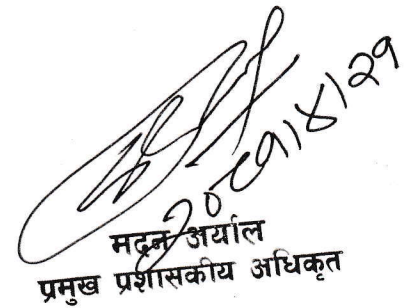 २०८१।४।२१
मदन अर्याल
प्रमुख प्रशासकीय अधिकृत